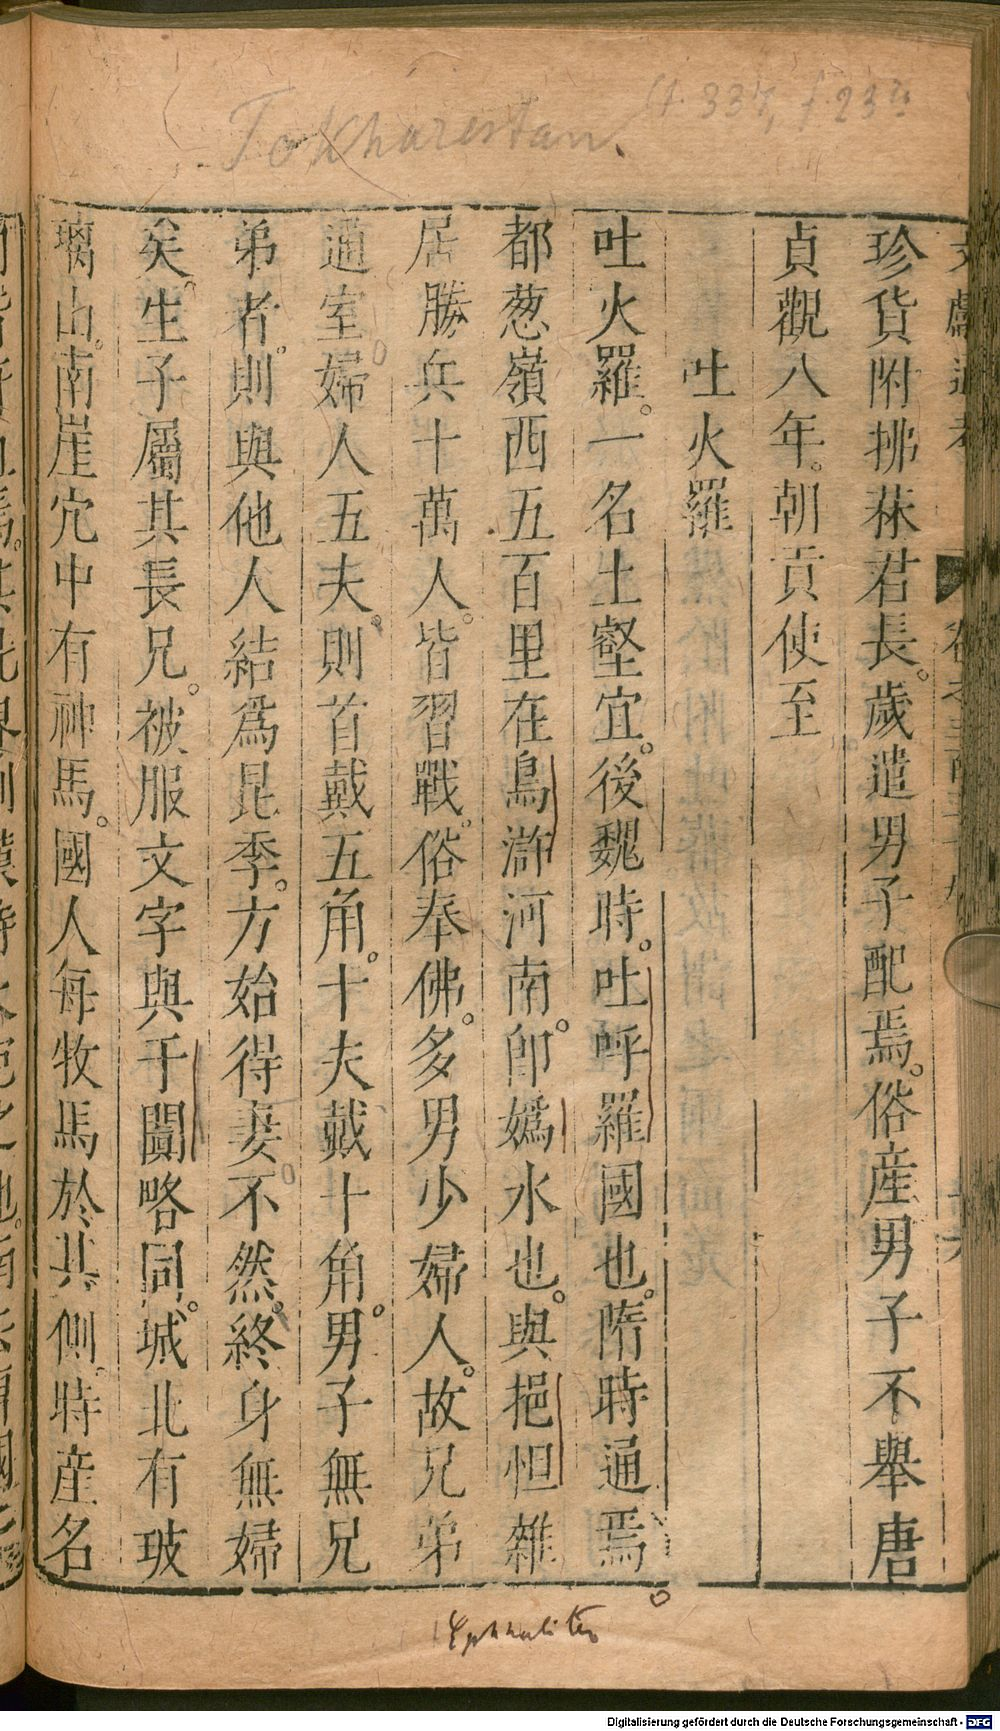 Tokharestan.
珍貨附拂菻君長。歲遣男子配焉。俗産男子不舉唐
貞觀八年。朝貢使至
吐火羅
吐火羅。一名土壑宜。後魏時。吐呼羅國也。隋時通焉。
都葱嶺西五百里在烏滸河南。卽嬀水也。與挹怛雜
居勝兵十萬人。皆習戰。俗奉佛。多男少婦人。故兄弟
通室。婦人五夫。則首戴五角。十夫戴十角。男子無兄
弟者。則與他人結爲昆季。方始得妻不然。終身無婦
矣。生子屬其長兄。被服文字與于闐略同。城北有玻
璃山。南崖穴中有神馬。國人每牧馬於其側。時産名
Ephthaliten
Digitalisierung gefördert durch die Deutsche Forschungsgemeinschaft - DFG